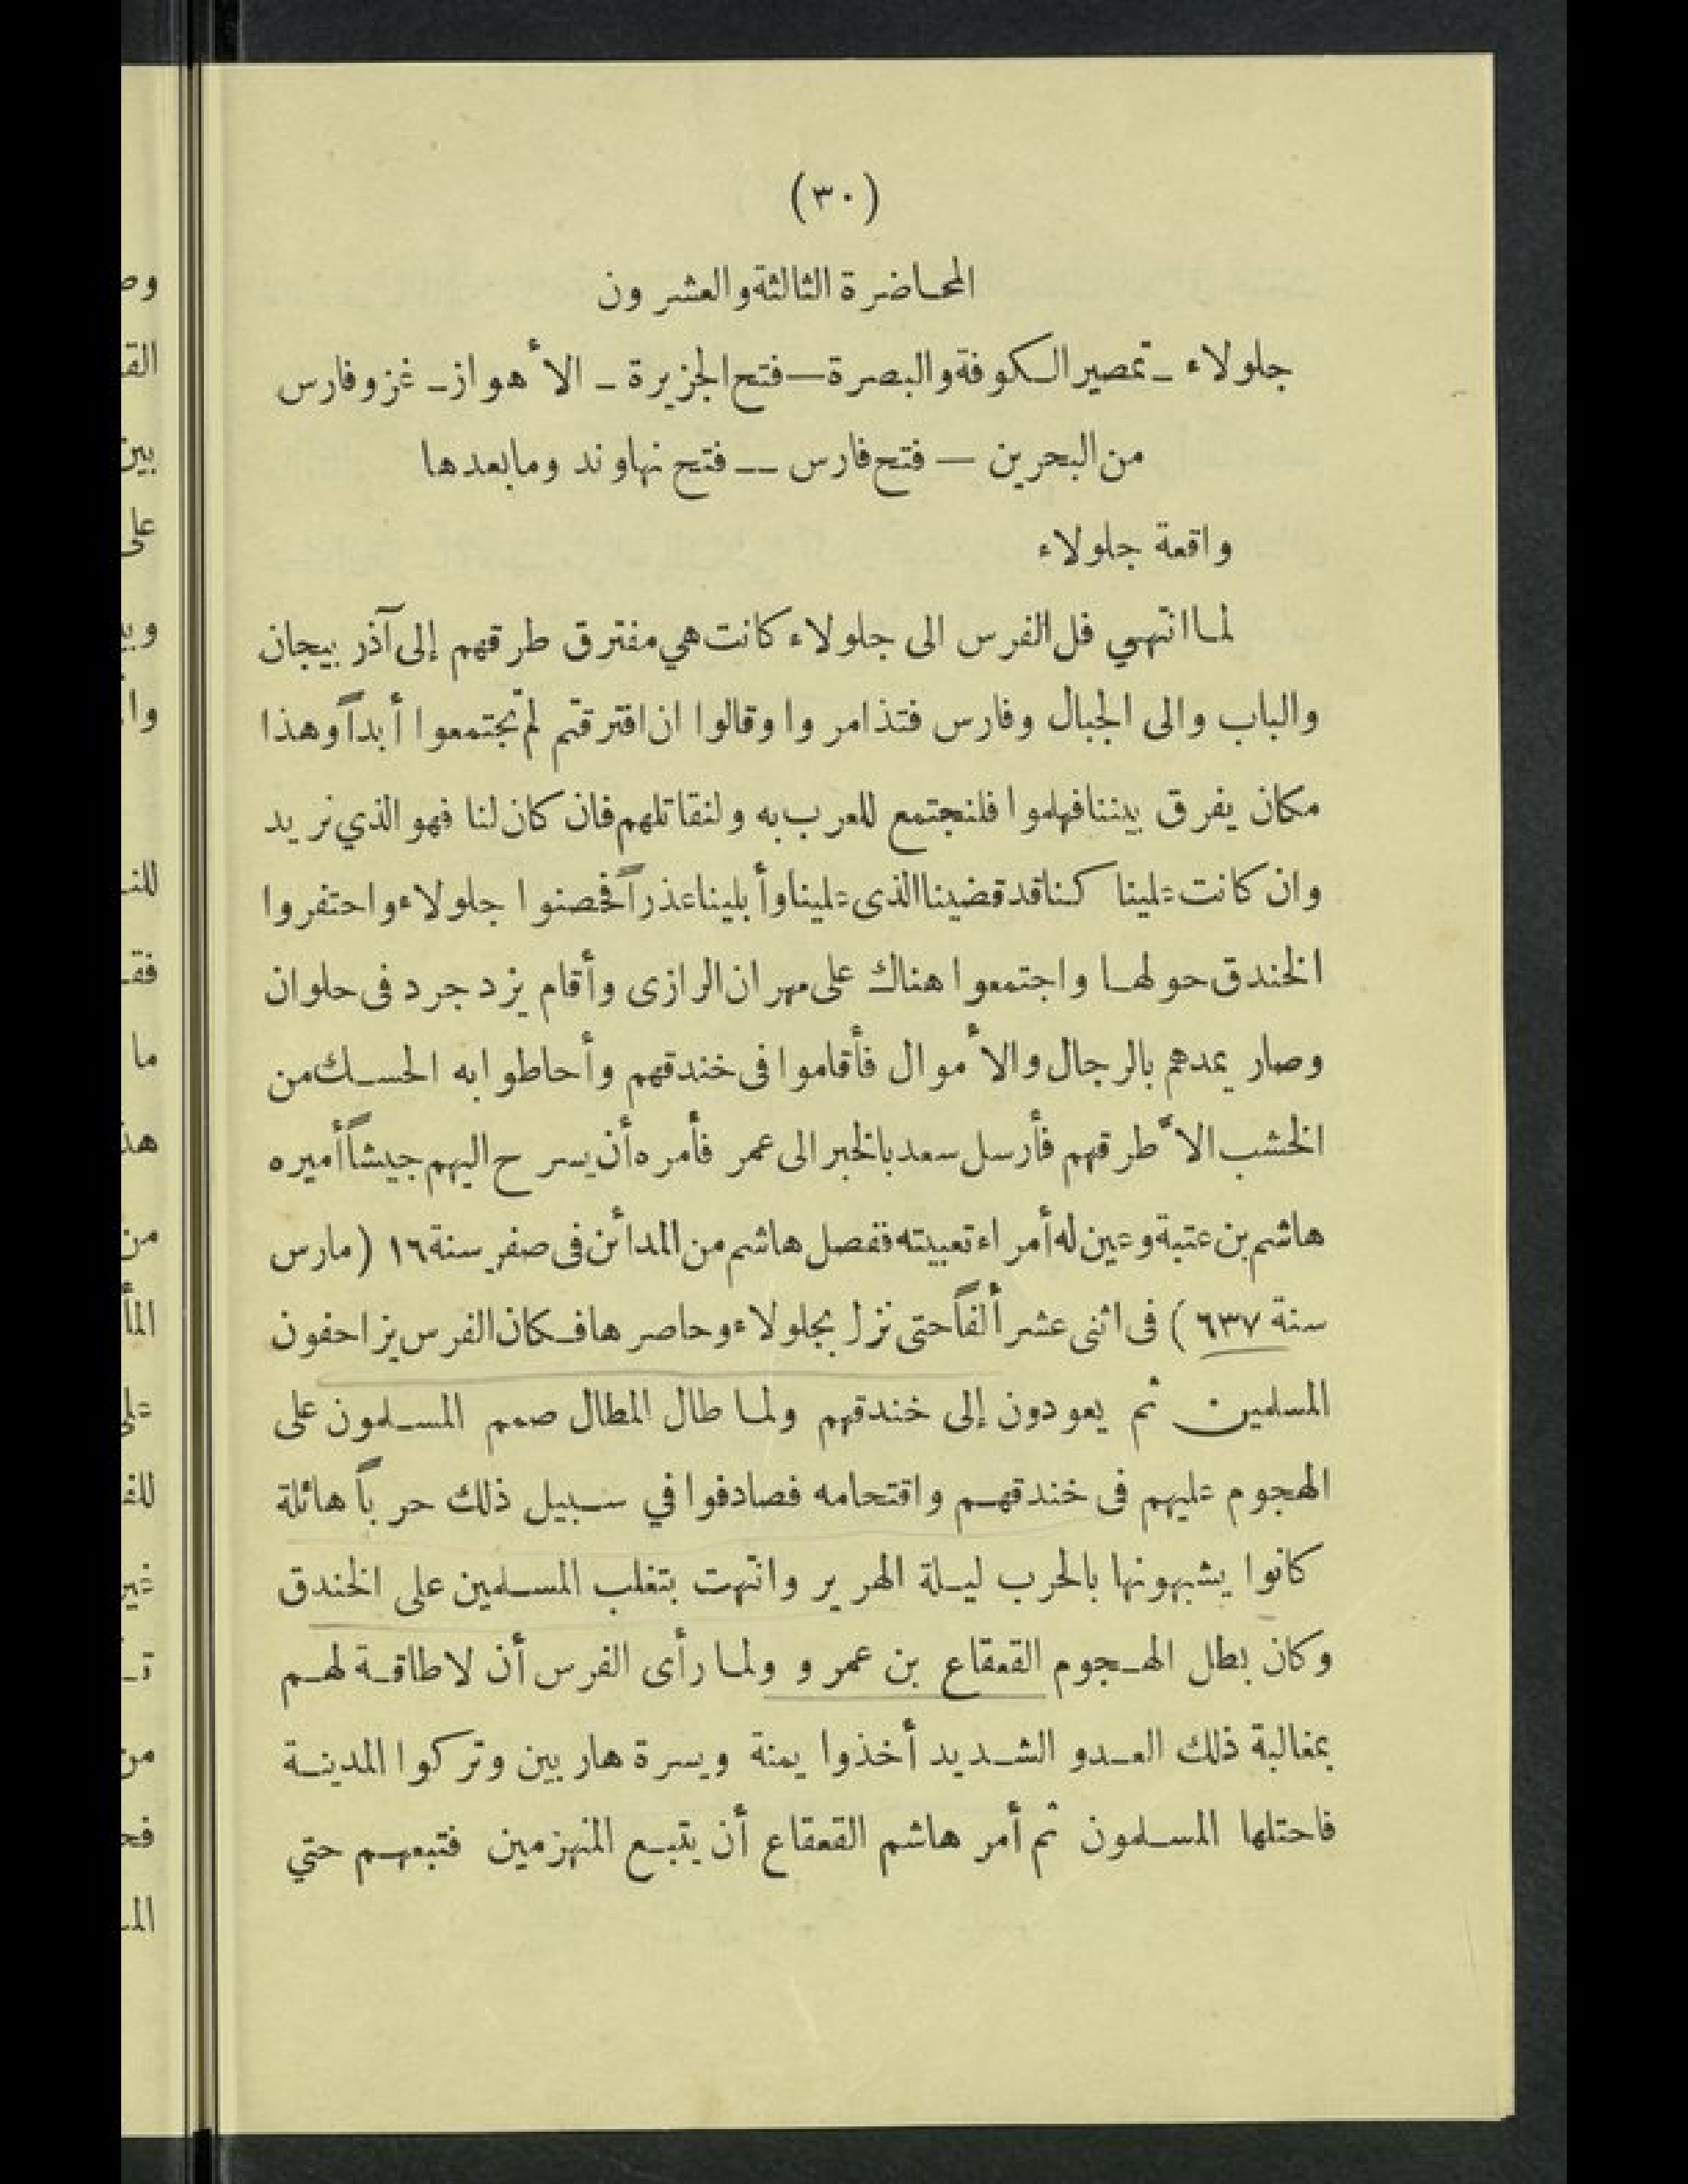 (٣٠)
المحاضرة الثالثة والعشرون
جلولاء ـ تمصير الكوفة والبصرة — فتح الجزيرة ـ الأهواز ـ غزو فارس
من البحرين — فتح فارس — فتح نهاوند وما بعدها
واقعة جلولاء
لما انتهي فل الفرس الى جلولاء كانت هي مفترق طرقهم إلى آذربيجان
والباب والى الجبال وفارس فتذامروا وقالوا ان افترقتم لم تجتمعوا أبداً وهذا
مكان يفرق بيننا فهلموا فلنجتمع للعرب به ولنقاتلهم فان كان لنا فهو الذي نريد
وان كانت علينا كنا قد قضينا الذى علينا وأبلينا عذراً فحصنوا جلولاء واحتفروا
الخندق حولها واجتمعوا هناك على مهران الرازى وأقام يزدجرد فى حلوان
وصار يمدهم بالرجال والأموال فأقاموا فى خندقهم وأحاطوا به الحسك من
الخشب الأ طرقهم فأرسل سعد بالخبر الى عمر فأمره أن يسرح اليهم جيشاً أميره
هاشم بن عتبة وعين له أمراء تعبيته ففصل هاشم من المدائن فى صفر سنة ١٦ (مارس
سنة ٦٣٧) فى اثنى عشر ألفاً حتى نزل بجلولاء وحاصرها فكان الفرس يزاحفون
المسلمين ثم يعودون إلى خندقهم ولما طال المطال صمم المسلمون على
الهجوم عليهم فى خندقهم واقتحامه فصادفوا في سبيل ذلك حرباً هائلة
كانوا يشبهونها بالحرب ليلة الهرير وانتهت بتغلب المسلمين على الخندق
وكان بطل الهجوم القعقاع بن عمرو ولما رأى الفرس أن لا طاقة لهم
بمغالبة ذلك العدو الشديد أخذوا يمنة ويسرة هاربين وتركوا المدينة
فاحتلها المسلمون ثم أمر هاشم القعقاع أن يتبع المنهزمين فتبعهم حتي